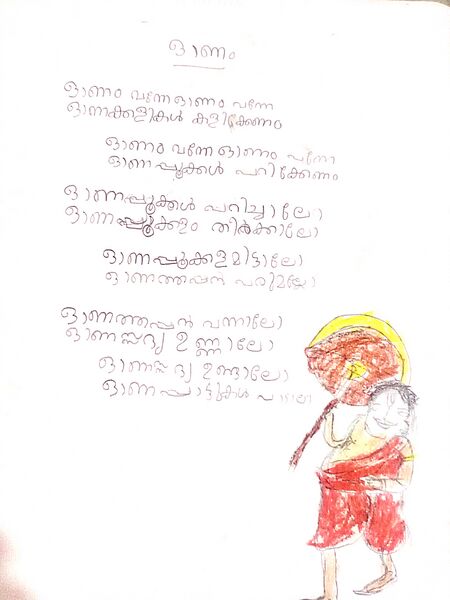 ഓണം
ഓണം വന്നേ ഓണം വന്നേ
ഓണക്കളികൾ കളിക്കേണം
ഓണം വന്നേ ഓണം വന്നേ
ഓണപ്പൂക്കൾ പറിക്കേണം
ഓണപ്പൂക്കൾ പറിച്ചാലോ
ഓണപ്പൂക്കളം തീർക്കാലോ
ഓണപ്പൂക്കളമിട്ടാലോ
ഓണത്തപ്പൻ വരുമല്ലോ
ഓണത്തപ്പൻ വന്നാലോ
ഓണസദ്യ ഉണ്ണാലോ
ഓണസദ്യ ഉണ്ടാലോ
ഓണപ്പാട്ടുകൾ